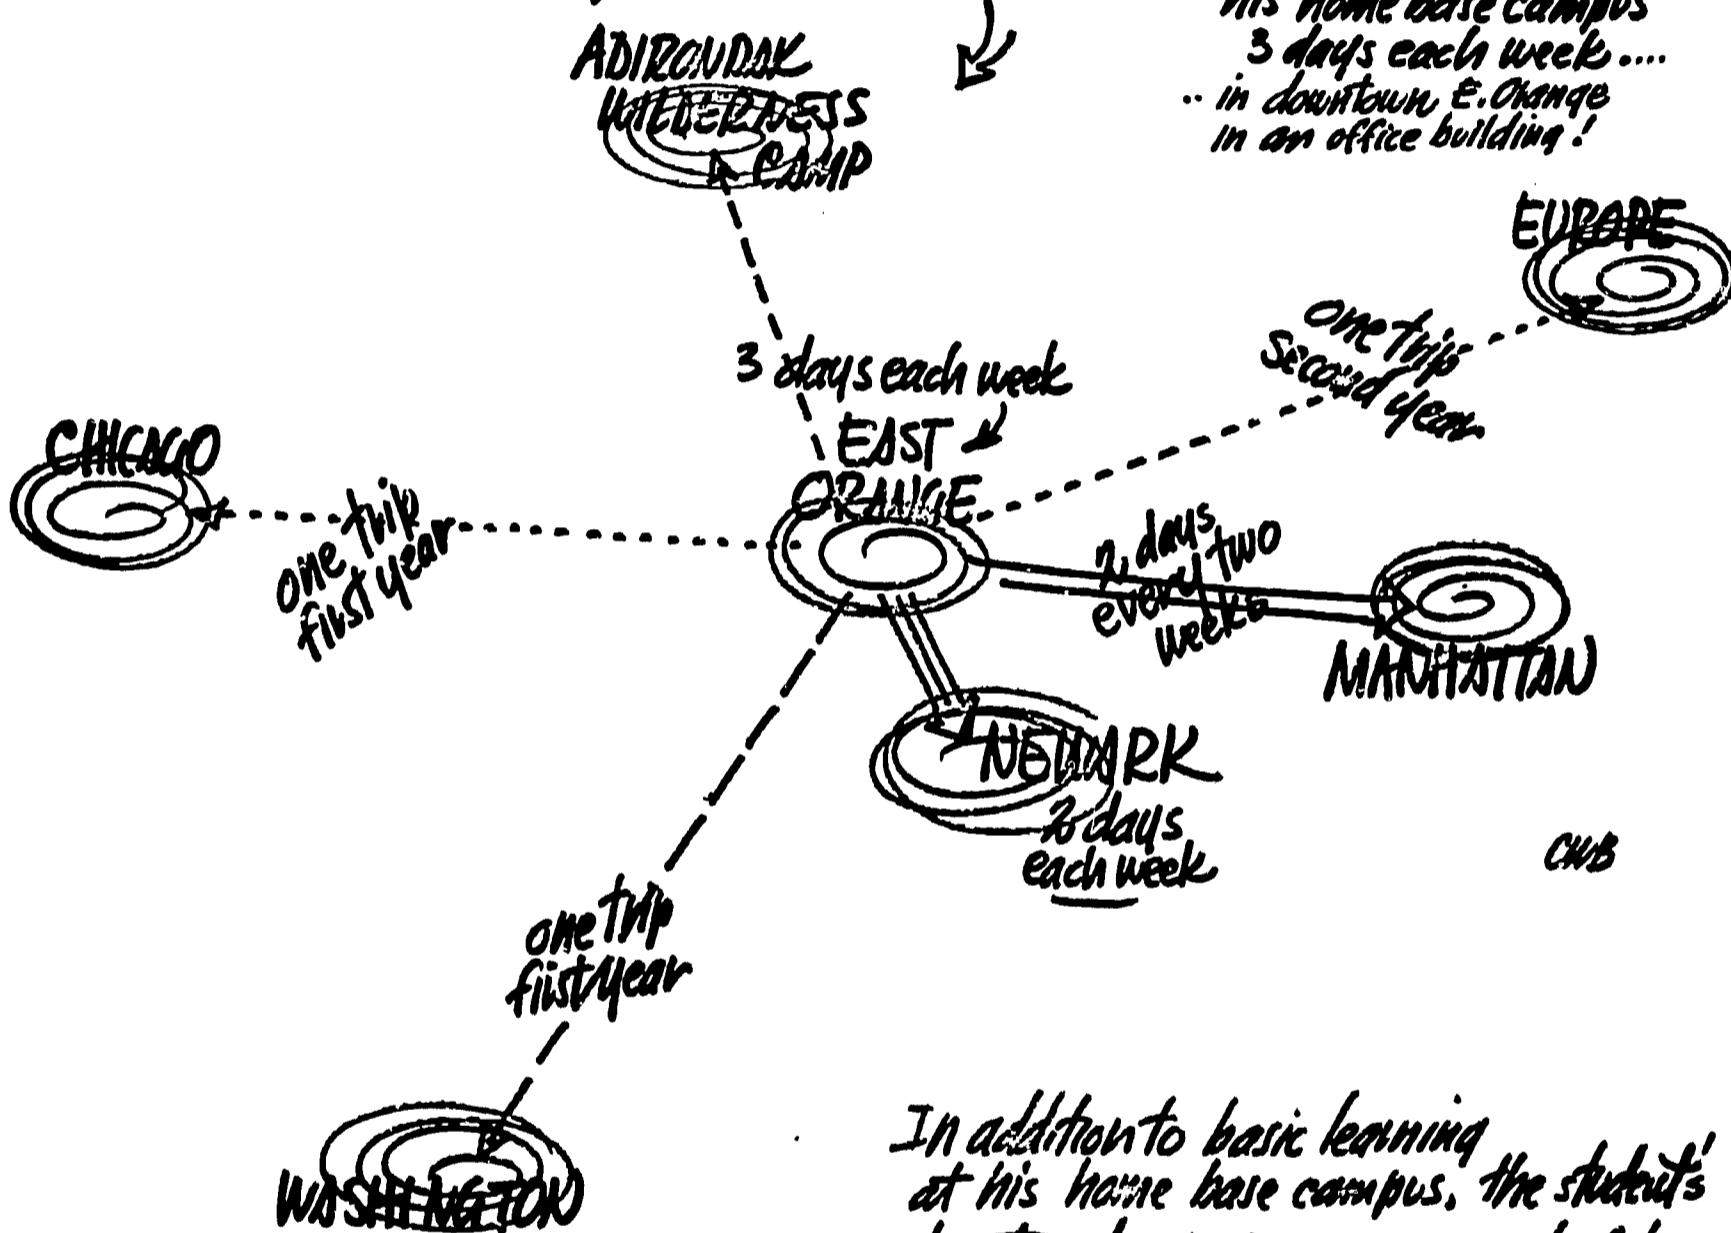 his home base campus
3 days each week....
.. in downtown E. Orange
in an office building!
ADIRONDAK
WILDERNESS
CAMP
EUROPE
one trip
second year
3 days each week
EAST
ORANGE
CHICAGO
one trip
first year
2 days
every two
weeks
MANHATTAN
NEWARK
2 days
each week
CWB
one trip
first year
WASHINGTON
In addition to basic learning
at his home base campus, the student's